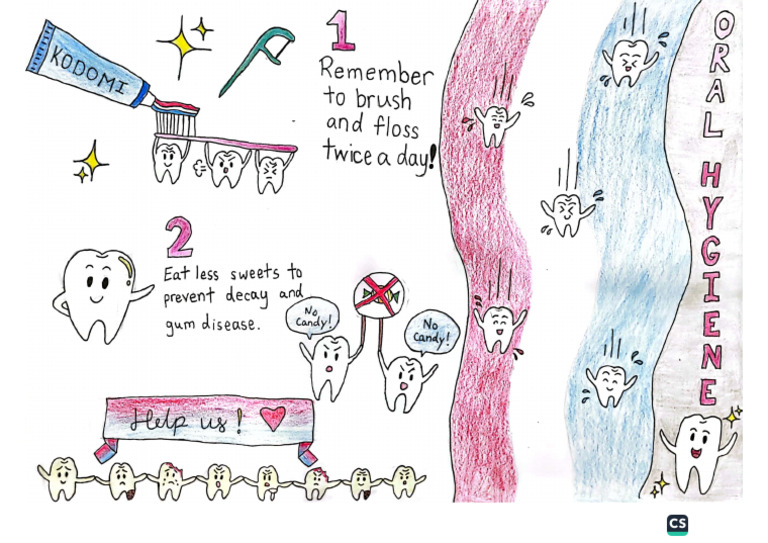 KODOMI
1
Remember
to brush
and floss
twice a day!
2
Eat less sweets to
prevent decay and
gum disease.
No
Candy!
No
Candy!
Help us!
ORAL HYGIENE
CS